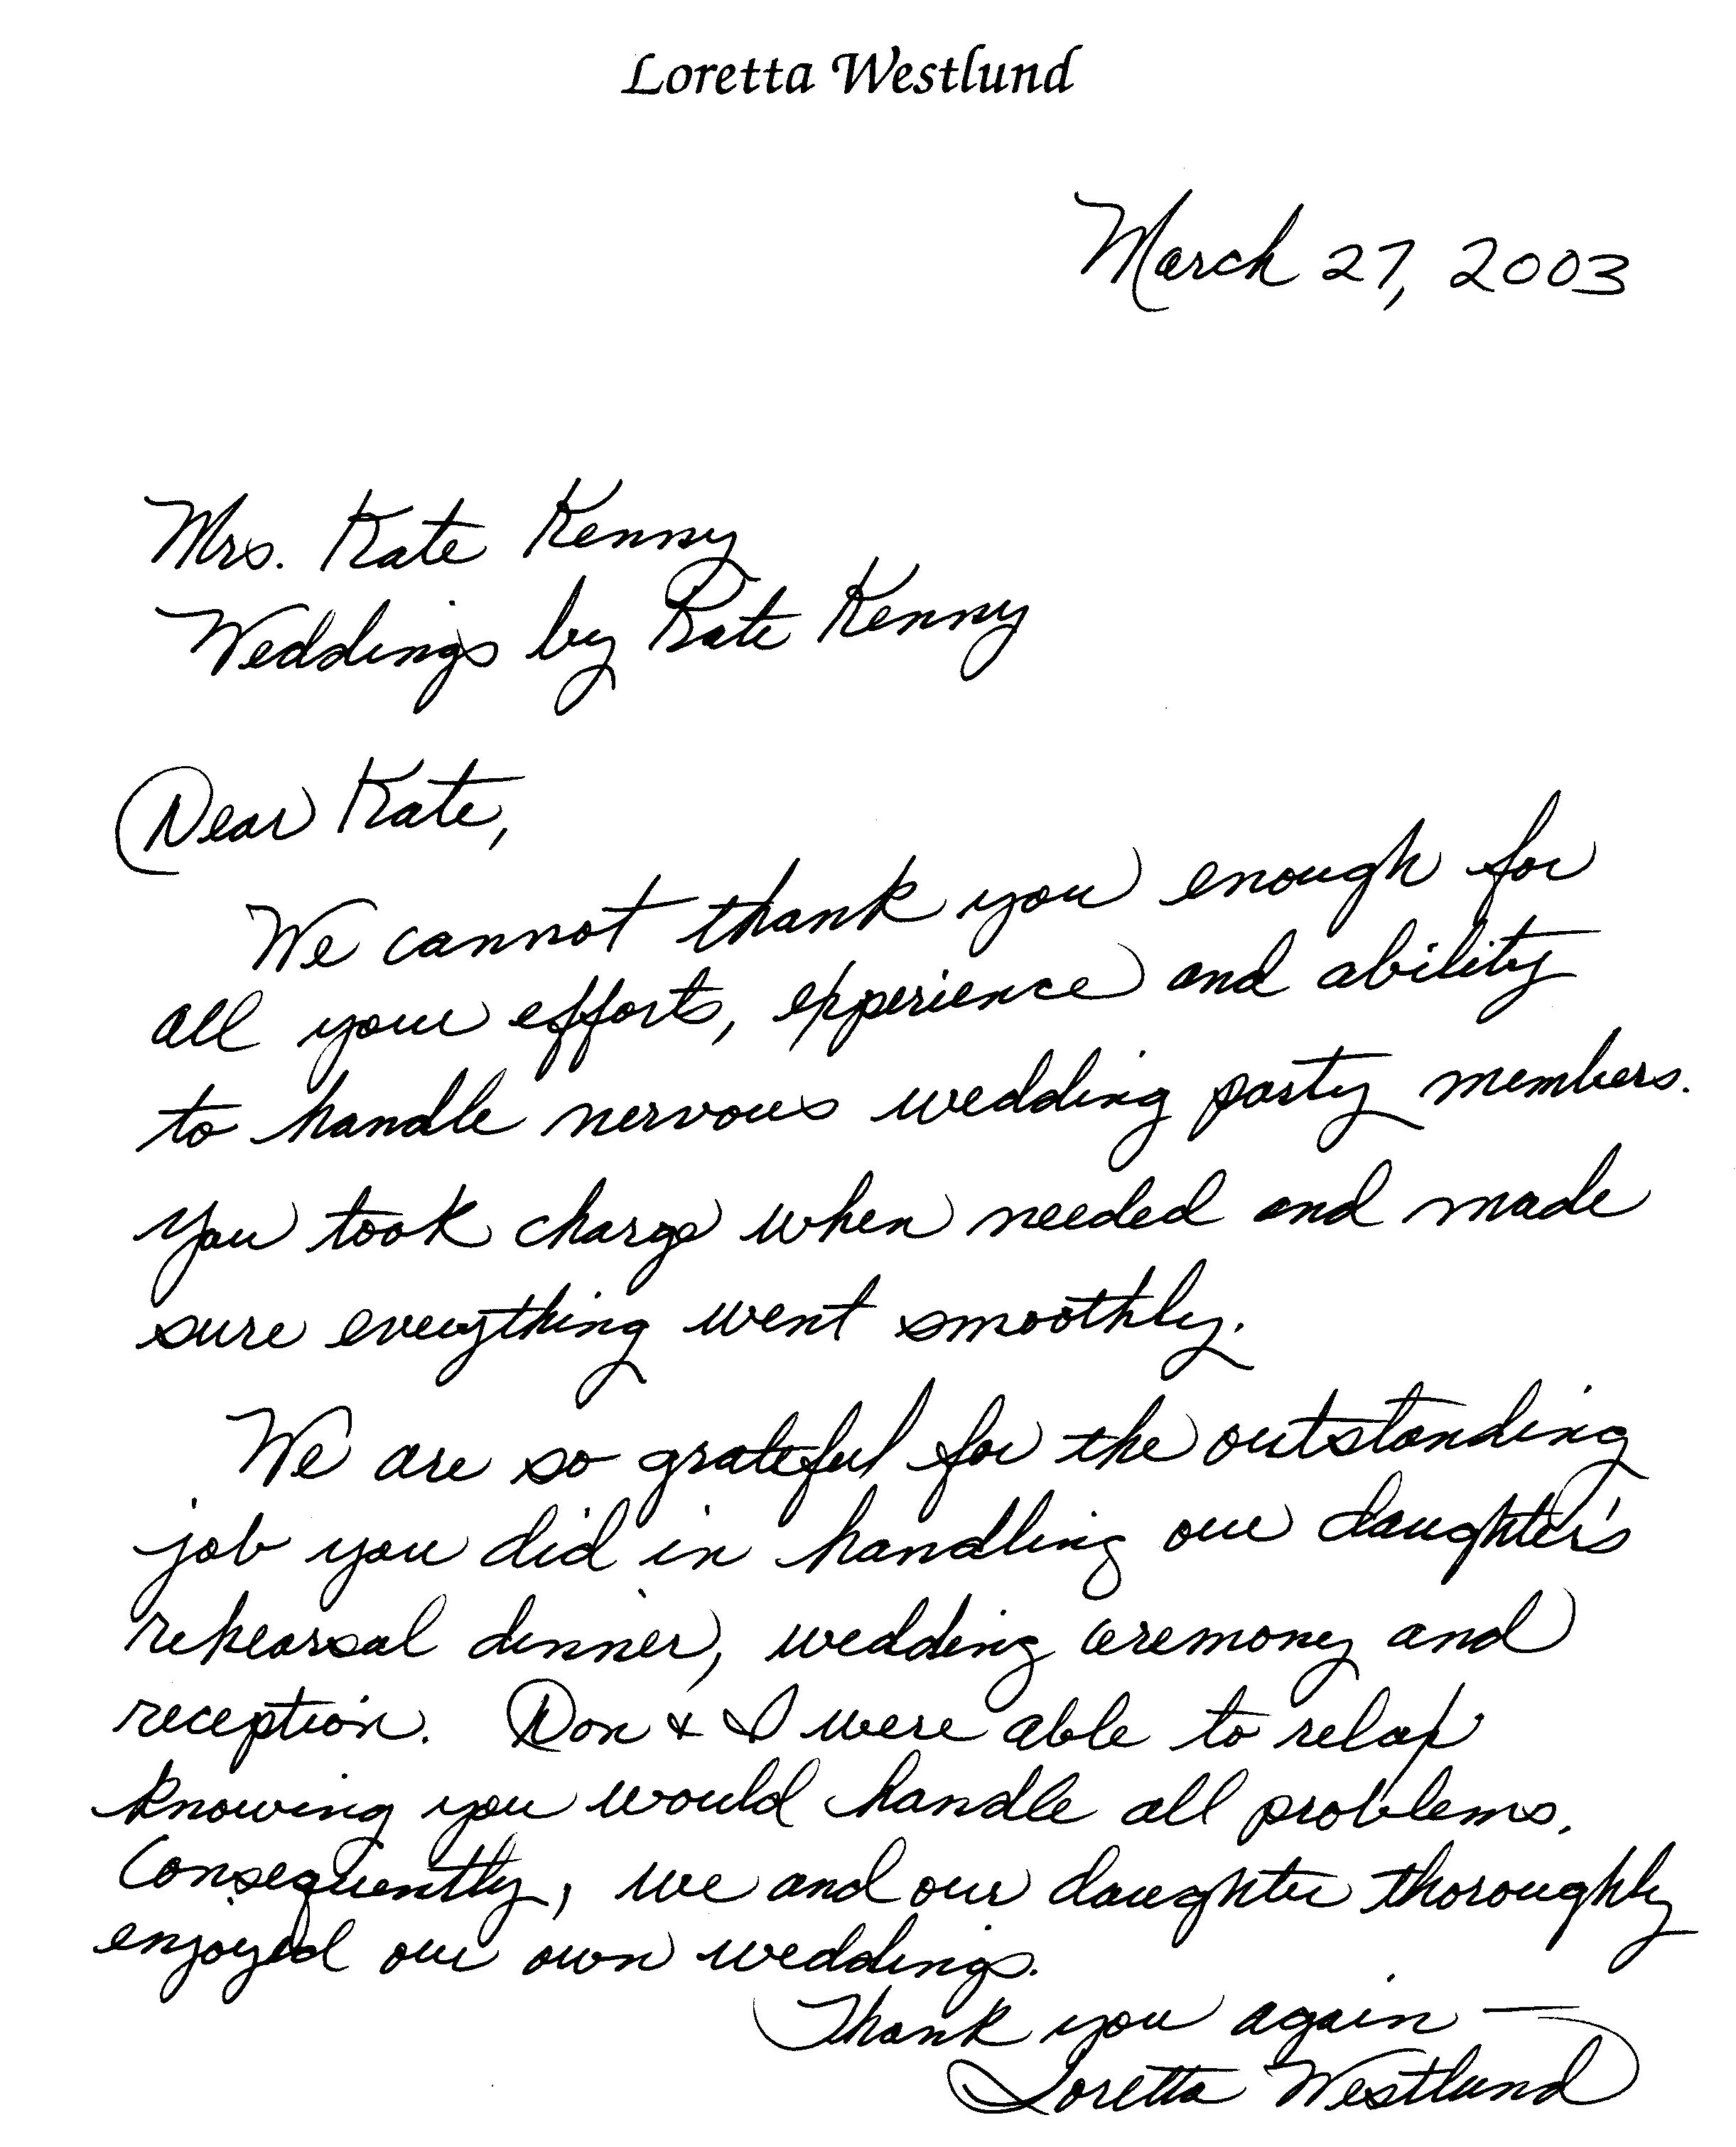 Loretta Westlund
March 27, 2003
Mrs. Kate Kenny
Weddings by Kate Kenny
Dear Kate,
We cannot thank you enough for
all your efforts, experience and ability
to handle nervous wedding party members.
You took charge when needed and made
sure everything went smoothly.
We are so grateful for the outstanding
job you did in handling our daughter's
rehearsal dinner, wedding ceremony and
reception. Don & I were able to relax
knowing you would handle all problems.
Consequently, we and our daughter thoroughly
enjoyed our own weddings.
Thank you again —
Loretta Westlund